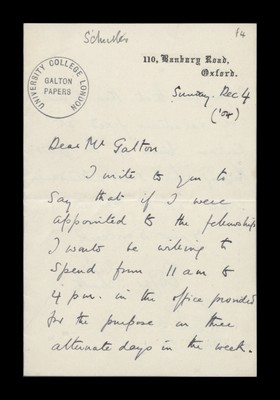 Schuster
f4
UNIVERSITY COLLEGE LONDON
GALTON
PAPERS
110, Banbury Road,
Oxford.
Sunday. Dec 4
('04)
Dear Mr Galton
I write to you to
say that if I were
appointed to the fellowship
I would be willing to
spend from 11 am to
4 p.m. in the office provided
for the purpose on three
alternate days in the week.